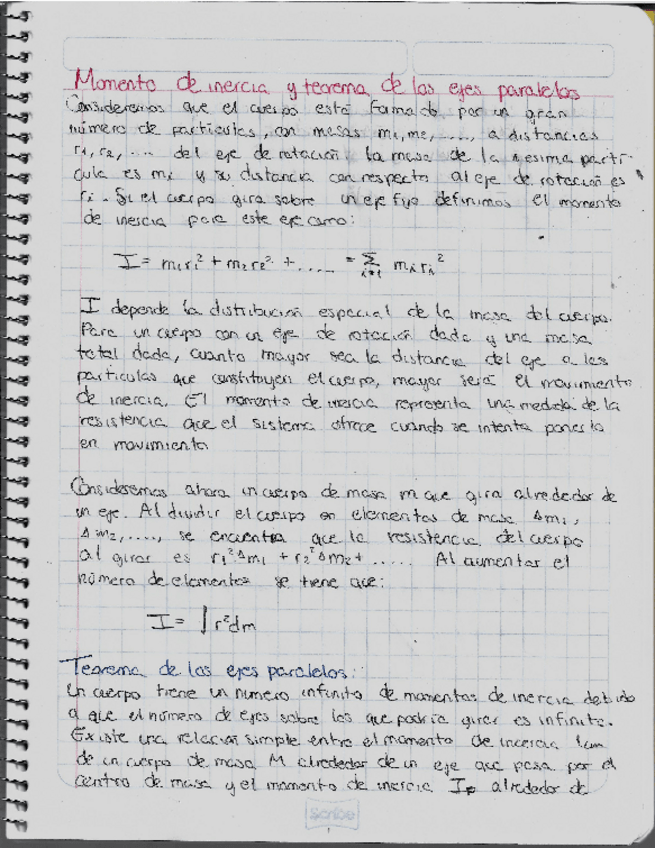 Momento de inercia y teorema de los ejes paralelos
Consideremos que el cuerpo está formado por un gran
número de partículas, con masas m₁, m₂, ....., a distancias
r₁, r₂, ... del eje de rotación, la masa de la iesima partí-
cula es mᵢ y su distancia con respecto al eje de rotación es
rᵢ. Si el cuerpo gira sobre un eje fijo definimos el momento
de inercia para este eje como:
I = m₁r₁² + m₂r₂² + ..... = Σ i=1 mᵢrᵢ²
I depende la distribución espacial de la masa del cuerpo.
Para un cuerpo con un eje de rotación dada y una masa
total dada, cuanto mayor sea la distancia del eje a las
partículas que constituyen el cuerpo, mayor será el movimiento
de inercia. El momento de inercia representa una medida de la
resistencia que el sistema ofrece cuando se intenta ponerlo
en movimiento
Consideremos ahora un cuerpo de masa m que gira alrededor de
un eje. Al dividir el cuerpo en elementos de masa Δm₁,
Δm₂, ....., se encuentra que la resistencia del cuerpo
al girar es r₁²Δm₁ + r₂²Δm₂ + ..... Al aumentar el
número de elementos se tiene que:
I = ∫r²dm
Teorema de los ejes paralelos:
Un cuerpo tiene un numero infinito de momentos de inercia debido
a que el número de ejes sobre los que podría girar es infinito.
Existe una relación simple entre el momento de incercia Icm
de un cuerpo de masa M alrededor de un eje que pasa por el
centro de masa y el momento de inercia Ip alrededor de
Scribe